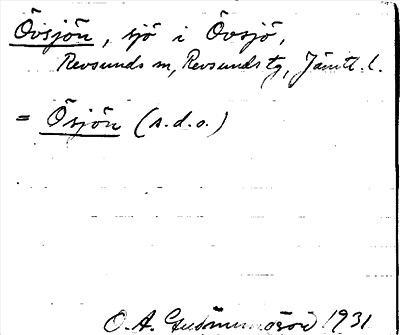 Övsjön, sjö i Övsjö,
Revsunds sn, Revsunds tg, Jämtl. l.
= Ösjön (s.d.o.)
O. A. Gudmundsson 1931